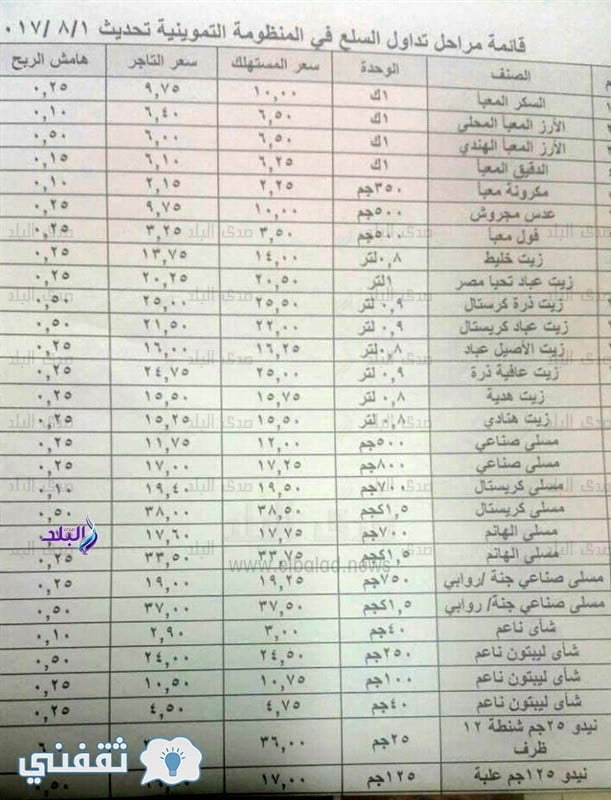 قائمة مراحل تداول السلع في المنظومة التموينية تحديث ٨/١/ ٠١٧
م الصنف الوحدة سعر المستهلك سعر التاجر هامش الربح
السكر المعبأ ١ك ١٠,٠٠ ٩,٧٥ ٠,٢٥
الأرز المعبأ المحلى ١ك ٦,٥٠ ٦,٤٠ ٠,١٠
الأرز المعبأ الهندي ١ك ٦,٥٠ ٦,٠٠ ٠,٥٠
الدقيق المعبأ ١ك ٦,٢٥ ٦,١٠ ٠,١٥
مكرونة معبأ ٣٥٠جم ٢,٢٥ ٢,١٥ ٠,١٠
عدس مجروش ٥٠٠جم ١٠,٠٠ ٩,٧٥ ٠,٢٥
فول معبأ ٥٠٠جم ٣,٥٠ ٣,٢٥ ٠,٢٥
زيت خليط ٠,٨لتر ١٤,٠٠ ١٣,٧٥ ٠,٢٥
زيت عباد تحيا مصر ١لتر ٢٠,٥٠ ٢٠,٢٥ ٠,٢٥
زيت ذرة كرستال ٠,٩ لتر ٢٥,٥٠ ٢٥,٠٠ ٠,٥٠
زيت عباد كريستال ٠,٩ لتر ٢٢,٠٠ ٢١,٥٠ ٠,٥٠
زيت الأصيل عباد ٠,٨لتر ١٦,٢٥ ١٦,٠٠ ٠,٢٥
زيت عافية ذرة ٠,٩ لتر ٢٥,٠٠ ٢٤,٧٥ ٠,٢٥
زيت هدية ٠,٨ لتر ١٥,٧٥ ١٥,٥٠ ٠,٢٥
زيت هنادي ٠,٨ لتر ١٥,٥٠ ١٥,٢٥ ٠,٢٥
مسلى صناعي ٥٠٠جم ١٢,٠٠ ١١,٧٥ ٠,٢٥
مسلى صناعي ٨٠٠جم ١٧,٢٥ ١٧,٠٠ ٠,٢٥
مسلى كريستال ٧٠٠جم ١٩,٥٠ ١٩,٤٠ ٠,١٠
مسلى كريستال ١,٥كجم ٣٨,٥٠ ٣٨,٠٠ ٠,٥٠
مسلى الهانم ٧٠٠جم ١٧,٧٥ ١٧,٦٠
مسلى الهانم ١,٥كجم ٣٣,٧٥ ٣٣,٥٠ ٠,٢٥
مسلى صناعي جنة /روابي ٧٥٠جم ١٩,٢٥ ١٩,٠٠ ٠,٢٥
مسلى صناعي جنة/ روابي ١,٥كجم ٣٧,٥٠ ٣٧,٠٠ ٠,٥٠
شأى ناعم ٤٠جم ٣,٠٠ ٢,٩٠ ٠,١٠
شأى ليبتون ناعم ٢٥٠جم ٢٤,٥٠ ٢٤,٠٠ ٠,٥٠
شأى ليبتون ناعم ١٠٠جم ١٠,٧٥ ١٠,٥٠ ٠,٢٥
شأى ليبتون ناعم ٤٠جم ٤,٧٥ ٤,٥٠ ٠,٢٥
نيدو ٢٥جم شنطة ١٢
ظرف ٢٥جم ٣٦,٠٠
نيدو ١٢٥جم علبة ١٢٥جم ١٧,٠٠ ٠,٥٠
صدى البلد
البلد
www.elbalad.news
ثقفني